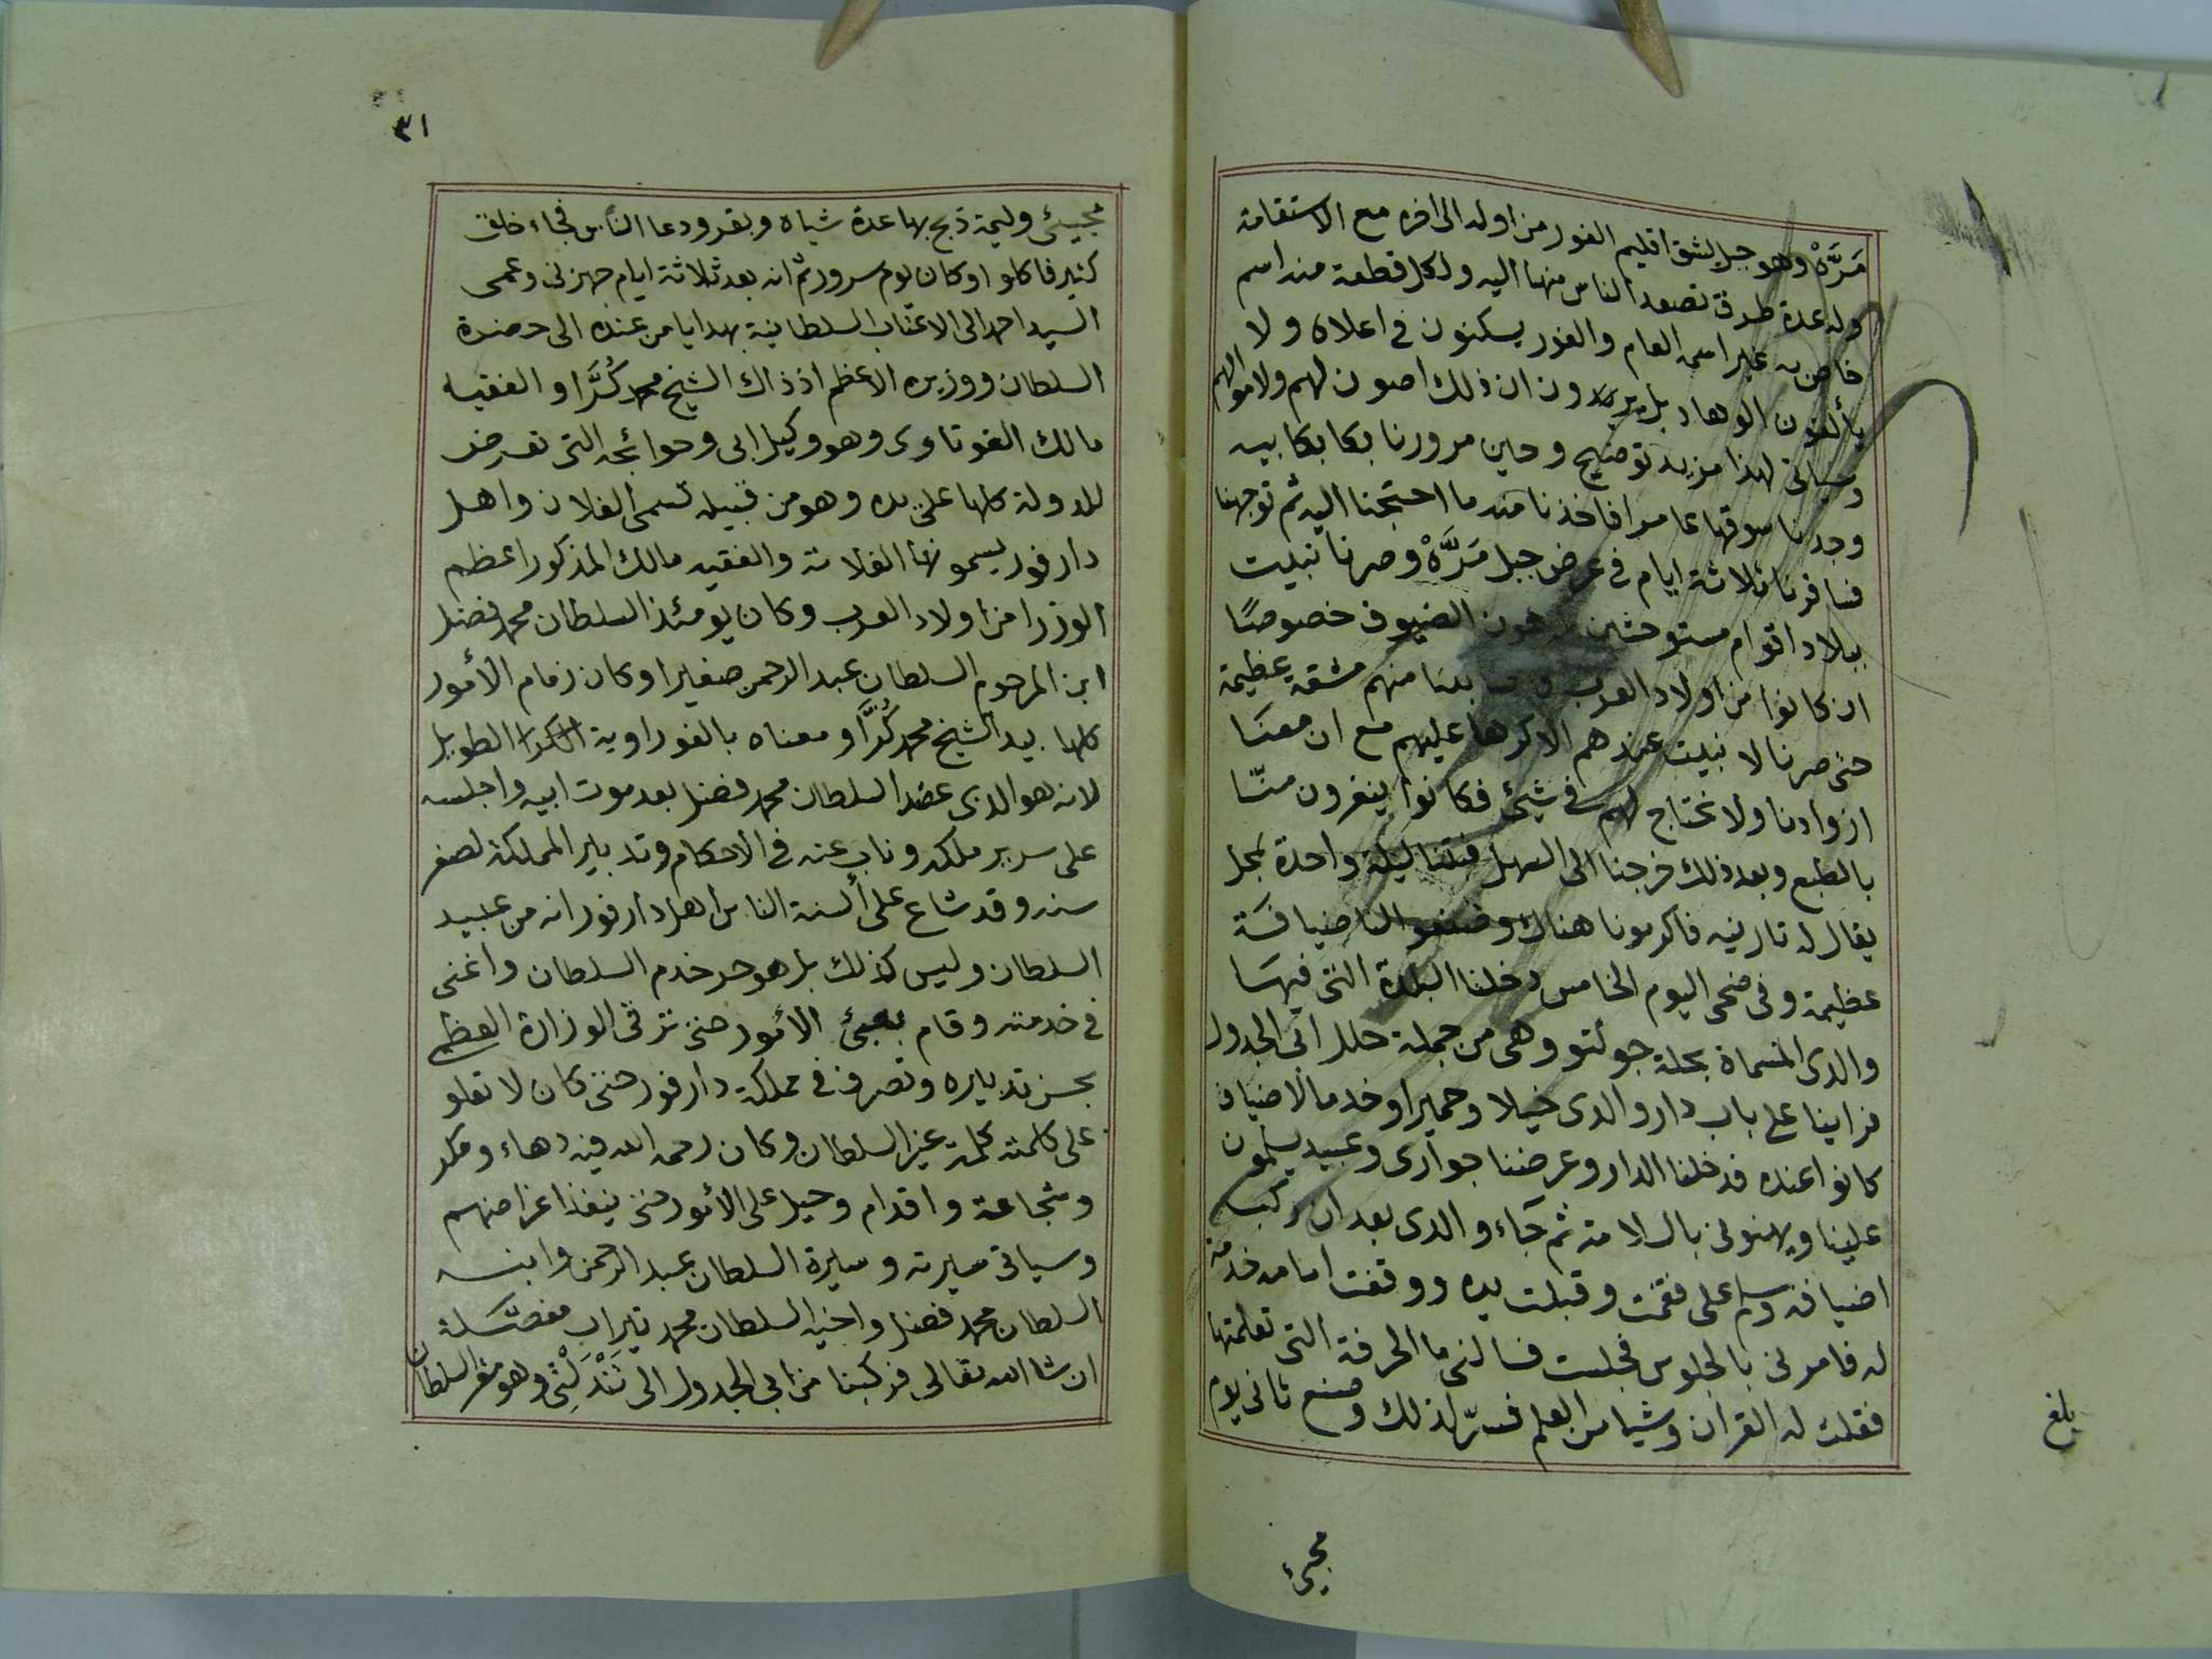 مَرَّهْ وهو جبل يشق اقليم الفور من اوله الى اخره مع الاستقامة
وله عدة طرق تصعد الناس منها اليه ولكل قطعة منه اسم
خاص به غير اسمه العام والفور يسكنون فى اعلاه ولا
يألفون الوهاد بل يرون ان ذلك اصون لهم ولاموالهم
وسياتى لهذا مزيد توضيح وحين مرورنا بكابكابيه
وجدنا سوقها عامرا فاخذنا منه ما احتجنا اليه ثم توجهنا
فسافرنا ثلاثة ايام فى عرض جبل مَرَّهْ وصرنا نبيت
ببلاد اقوام مستوحشين يكرهون الضيوف خصوصًا
ان كانوا من اولاد العرب وكابدنا منهم مشقة عظيمة
حتى صرنا لا نبيت عندهم الا كرها عليهم مع ان معنا
ازوادنا ولا نحتاج لهم فى شيئ فكانوا ينفرون منّا
بالطبع وبعد ذلك خرجنا الى السهل فبتنا ليلة واحدة بمحل
يقال له تارنيه فاكرمونا هناك وصنعوا لنا ضيافة
عظيمة وفى ضحى اليوم الخامس دخلنا البلدة التى فيها
والدى المسماة بحلة جولتو وهى من جملة حلل ابى الجدول
فراينا على باب دار والدى خيلا وحميرا وخدما لاضياف
كانوا عنده فدخلنا الدار وعرضنا جوارى وعبيد يسلمون
علينا ويهنونى بالسلامة ثم جاء والدى بعد ان ركب
اضيافه وسلم على فقمت وقبلت يده ووقفت امامه خدمة
له فامرنى بالجلوس فجلست فسالنى ما الحرفة التى تعلمتها
فقلت له القران وشيا من العلم فسرّ لذلك وصنع ثانى يوم
بلغ
مجيئ
٣١
مجيئى وليمة ذبح بها عدة شياه وبقر ودعا الناس فجاء خلق
كثير فاكلوا وكان يوم سرور ثم انه بعد ثلاثة ايام جهزنى وعمى
السيد احمد الى الاعتاب السلطانية بهدايا من عنده الى حضرة
السلطان ووزيره الاعظم اذ ذاك الشيخ محمد كُرَّا والفقيه
مالك الفوتاوى وهو وكيل ابى وحوائجه التى تعرض
للدولة كلها على يده وهو من قبيله تسمى الفلان واهل
دارفور يسمونها الفلاتة والفقيه مالك المذكور اعظم
الوزرا من اولاد العرب وكان يومئذ السلطان محمد فضل
ابن المرحوم السلطان عبد الرحمن صغيرا وكان زمام الأمور
كلها بيد الشيخ محمد كُرَّا ومعناه بالفوراوية الطويل
لانه هو الذى عضد السلطان محمد فضل بعد موت ابيه واجلسه
على سرير ملكه وناب عنه فى الاحكام وتدبير المملكة لصغر
سنه وقد شاع على ألسنة الناس اهل دارفور انه من عبيد
السلطان وليس كذلك بل هو حر خدم السلطان واغنى
فى خدمته وقام بعبئ الأمور حتى ترقى الوزارة العظمى
بحسن تدبيره وتصرف فى مملكة دارفور حتى كان لا تعلو
على كلمته كلمة غير السلطان وكان رحمه الله فيه دهاء ومكر
وشجاعة واقدام وحيل على الأمور حتى ينفذ اغراضهم
وسياتى سيرته وسيرة السلطان عبد الرحمن وابنه
السلطان محمد فضل واخيه السلطان محمد تيراب مفصّلة
ان شا الله تعالى فركبنا من ابى الجدول الى تَنْدَلْتِى وهو مقر السلطان